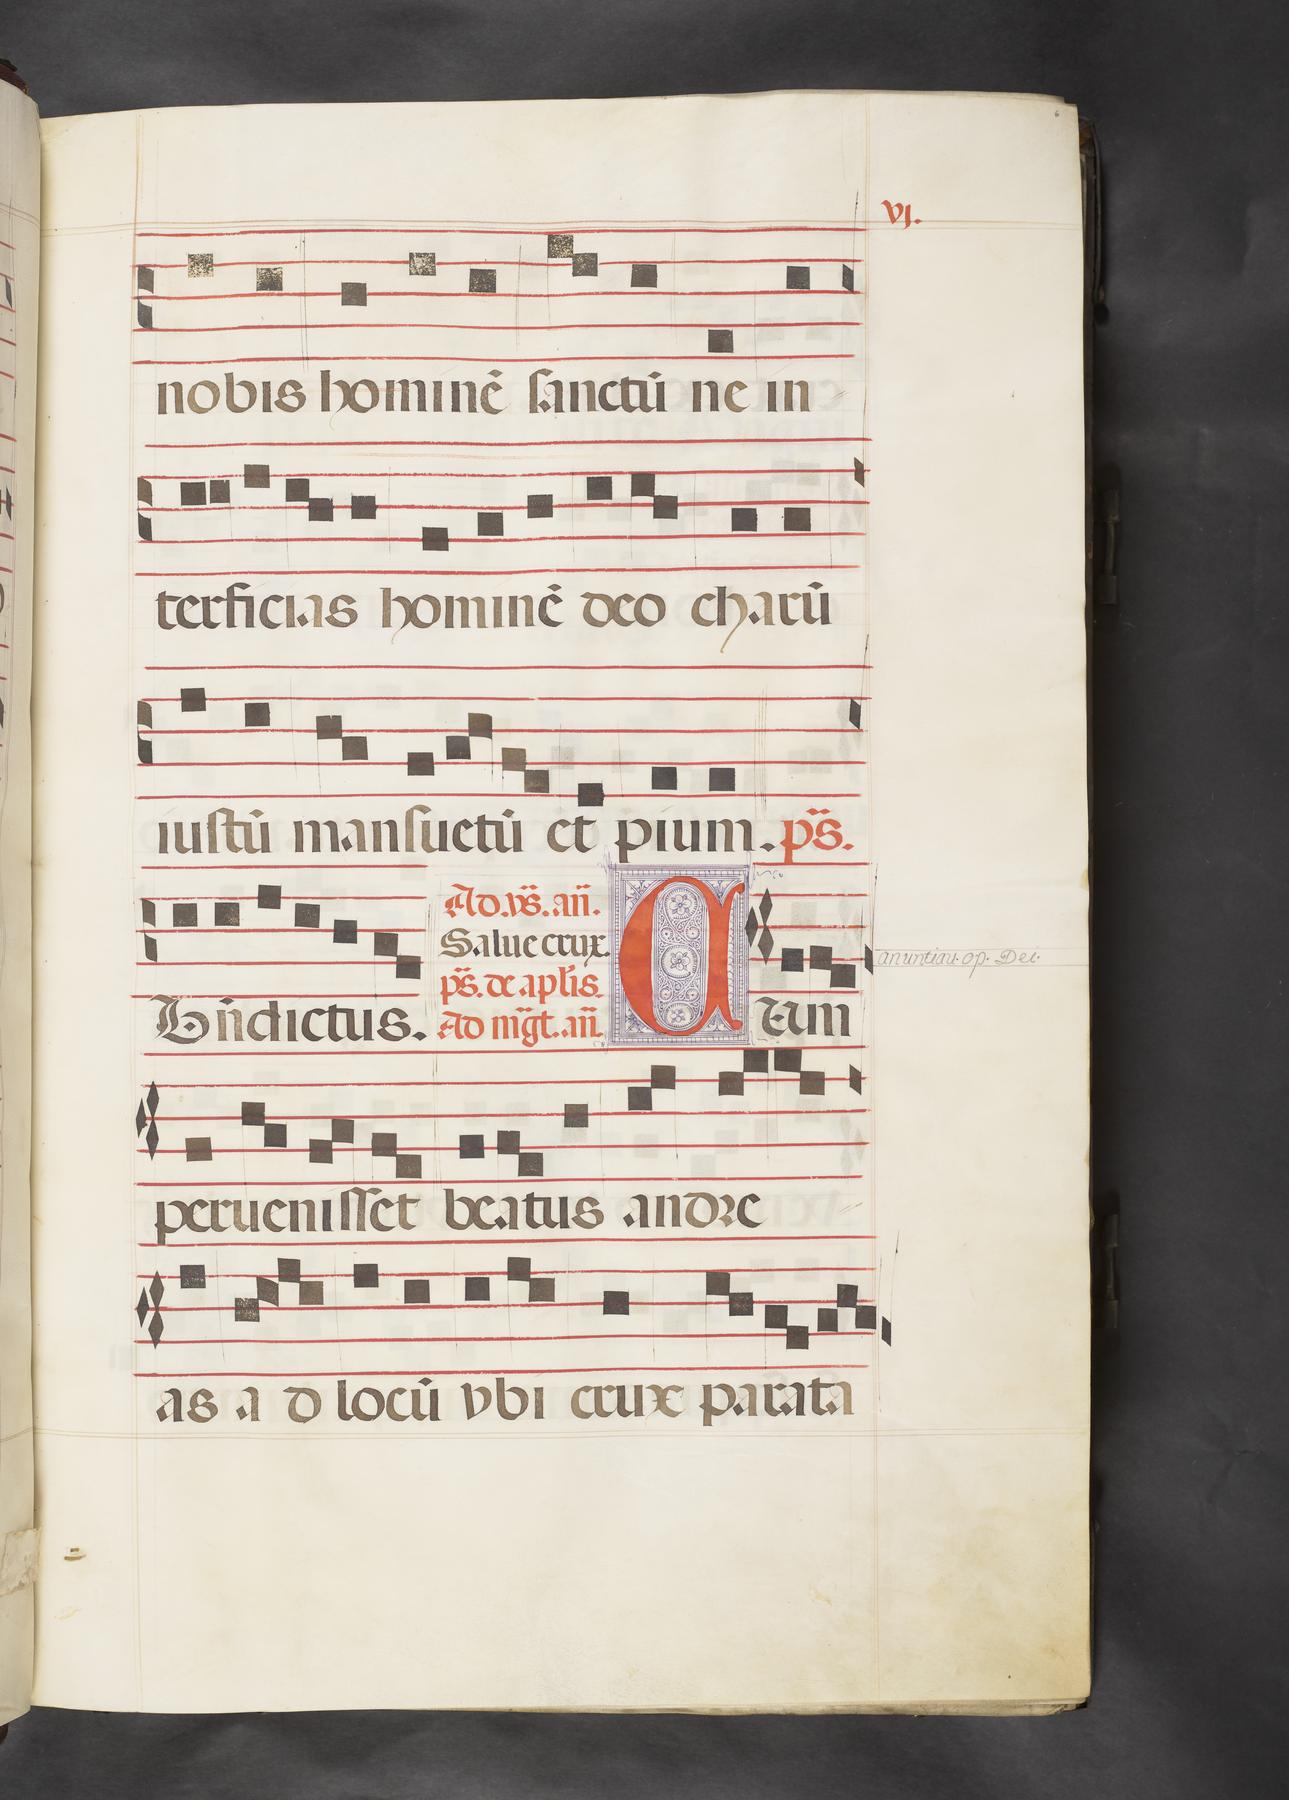 vj.
6
nobis hominē sanctū ne in
terficias hominē deo charū
iustū mansuetū et pium. ps̄.
Ad. vs̄. an̄.
Salue crux.
ps̄. de aplis.
Ad mḡt. an̄.
Bn̄dictus. C Um
anuntiau. op. Dei.
peruenisset beatus andre
as a d locū vbi crux parata